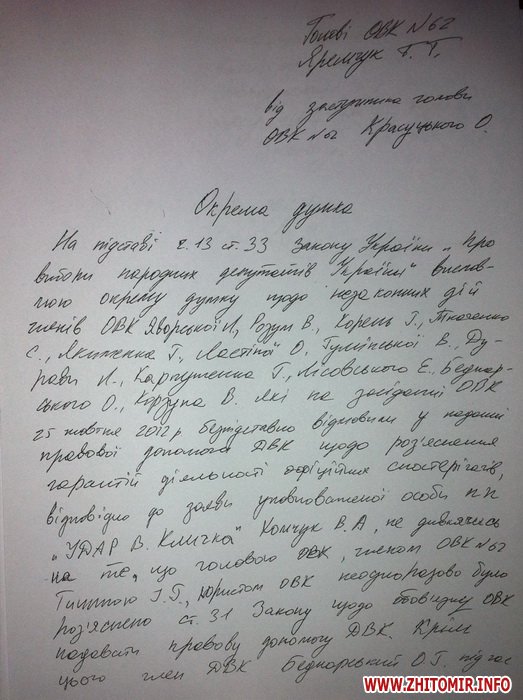 Голові ОВК №62
Яремчук Г. Т.
від заступника голови
ОВК №62 Красуцького О.
Окрема думка
На підставі ч. 13 ст. 33 Закону України „Про
вибори народних депутатів України" вислов-
люю окрему думку щодо незаконних дій
членів ОВК Яворської И, Розум В., Корень Г.,
С., Якименка Г., Ластівої О, Тумінської В., Ду-
рави И., Карпушенка Г, Лісовського Е., Беднар-
ського О., Корзуна В. які на засіданні ОВК
25 жовтня 2012 р безпідставно відмовили у наданні
правової допомоги ДВК щодо роз'яснення
гарантій діяльності офіційних спостерігачів,
відповідно до заяви уповноваженої особи ПП
„УДАР В. Кличка" Хомчук В.А, не дивлячись
на те, що головою ОВК, членом ОВК №62
Тишною І.Г., юристом ОВК неодноразово було
роз'яснено ст. 31 Закону щодо обов'язку ОВК
надавати правову допомогу ДВК. Крім
цього член ДВК Беднарський О.Г. під час
WWW.ZHITOMIR.INFO